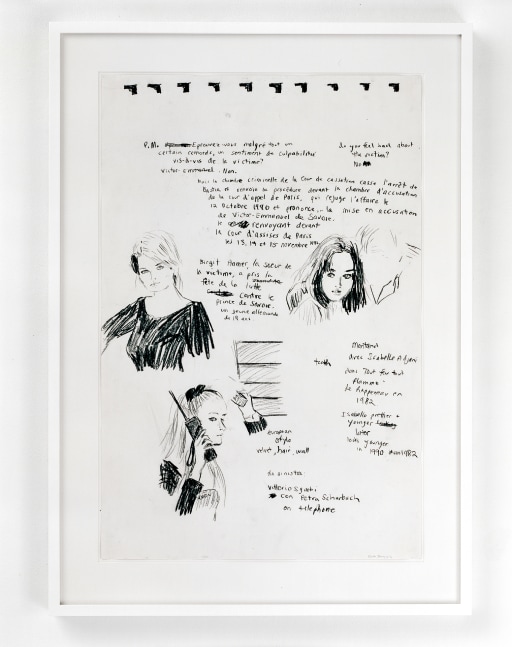 P.M. Eprouvez-vous malgré tout un
certain remords, un sentiment de culpabilité
vis-à-vis de la victime?
Victor-Emmanuel. Non.
do you feel back about
the victim?
No
Mais la chambre criminelle de la Cour de cassation casse l'arrêt de
Bastia et renvoie la procédure devant la chambre d'accusation
de la cour d'appel de Paris, qui rejuge l'affaire le
12 octobre 1990 et prononce... la mise en accusation
de Victor-Emmanuel de Savoie.
le renvoyant devant
la cour d'assises de Paris
les 13, 14 et 15 novembre
Birgit Hamer, la soeur de
la victime, a pris la
tête de la lutte
contre le
prince de Savoie.
un jeune allemand
de 19 ans
teeth
Montand
avec Isabelle Adjani
dans Tout feu tout
flamme
de Rappeneau en
1982
Isabelle prettier +
younger
later
looks younger
in 1990 than 1982
european
style
velvet, hair, wall
da sinistra:
Vittorio Sgarbi
con Petra Scharbach
on telephone